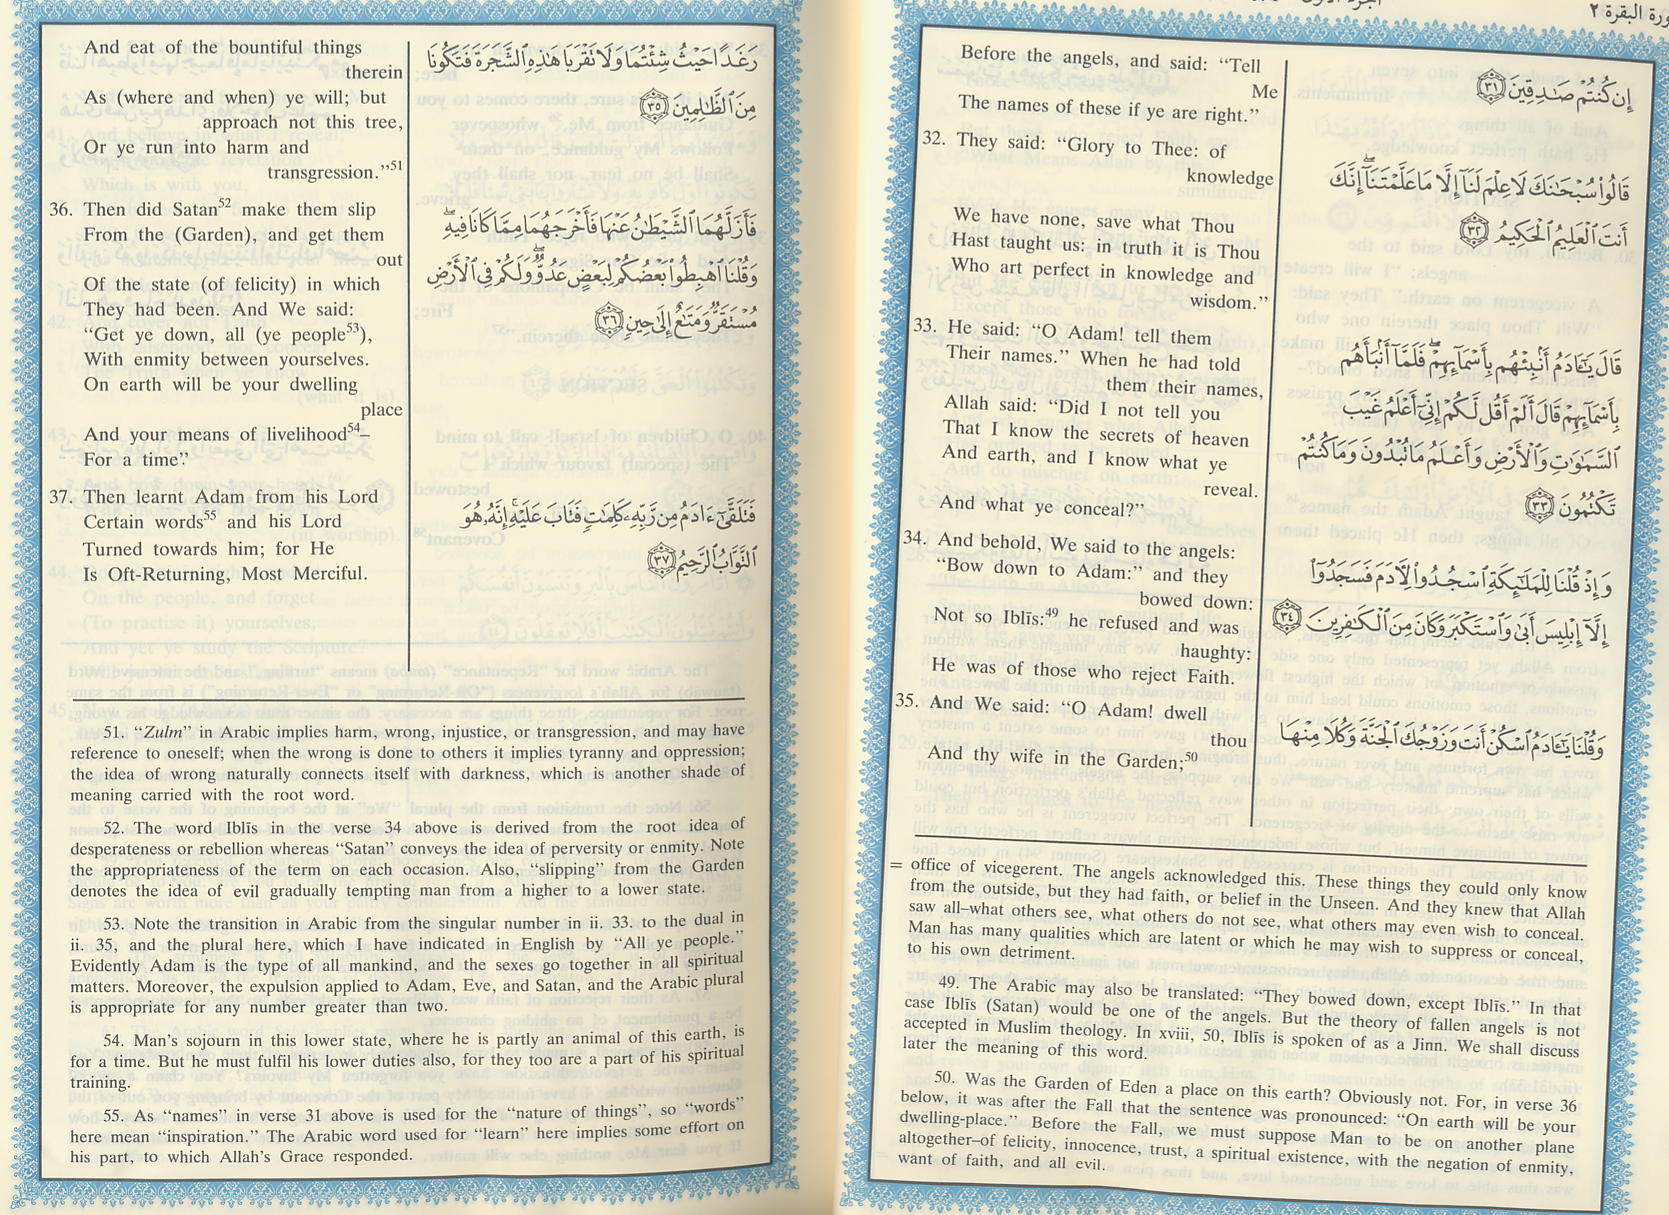 البقرة ٢
Before the angels, and said: “Tell
Me
The names of these if ye are right.”
32. They said: “Glory to Thee: of
knowledge
We have none, save what Thou
Hast taught us: in truth it is Thou
Who art perfect in knowledge and
wisdom.”
33. He said: “O Adam! tell them
Their names.” When he had told
them their names,
Allah said: “Did I not tell you
That I know the secrets of heaven
And earth, and I know what ye
reveal.
And what ye conceal?”
34. And behold, We said to the angels:
“Bow down to Adam:” and they
bowed down:
Not so Iblīs:49 he refused and was
haughty:
He was of those who reject Faith.
35. And We said: “O Adam! dwell
thou
And thy wife in the Garden;50
إِن كُنتُمْ صَـٰدِقِينَ ٣١
قَالُوا۟ سُبْحَـٰنَكَ لَا عِلْمَ لَنَآ إِلَّا مَا عَلَّمْتَنَآ ۖ إِنَّكَ
أَنتَ ٱلْعَلِيمُ ٱلْحَكِيمُ ٣٢
قَالَ يَـٰٓـَٔادَمُ أَنۢبِئْهُم بِأَسْمَآئِهِمْ ۖ فَلَمَّآ أَنۢبَأَهُم
بِأَسْمَآئِهِمْ قَالَ أَلَمْ أَقُل لَّكُمْ إِنِّىٓ أَعْلَمُ غَيْبَ
ٱلسَّمَـٰوَٰتِ وَٱلْأَرْضِ وَأَعْلَمُ مَا تُبْدُونَ وَمَا كُنتُمْ
تَكْتُمُونَ ٣٣
وَإِذْ قُلْنَا لِلْمَلَـٰٓئِكَةِ ٱسْجُدُوا۟ لِـَٔادَمَ فَسَجَدُوٓا۟
إِلَّآ إِبْلِيسَ أَبَىٰ وَٱسْتَكْبَرَ وَكَانَ مِنَ ٱلْكَـٰفِرِينَ ٣٤
وَقُلْنَا يَـٰٓـَٔادَمُ ٱسْكُنْ أَنتَ وَزَوْجُكَ ٱلْجَنَّةَ وَكُلَا مِنْهَا
= office of vicegerent. The angels acknowledged this. These things they could only know
from the outside, but they had faith, or belief in the Unseen. And they knew that Allah
saw all–what others see, what others do not see, what others may even wish to conceal.
Man has many qualities which are latent or which he may wish to suppress or conceal,
to his own detriment.
49. The Arabic may also be translated: “They bowed down, except Iblīs.” In that
case Iblīs (Satan) would be one of the angels. But the theory of fallen angels is not
accepted in Muslim theology. In xviii, 50, Iblīs is spoken of as a Jinn. We shall discuss
later the meaning of this word.
50. Was the Garden of Eden a place on this earth? Obviously not. For, in verse 36
below, it was after the Fall that the sentence was pronounced: “On earth will be your
dwelling-place.” Before the Fall, we must suppose Man to be on another plane
altogether–of felicity, innocence, trust, a spiritual existence, with the negation of enmity,
want of faith, and all evil.
And eat of the bountiful things
therein
As (where and when) ye will; but
approach not this tree,
Or ye run into harm and
transgression.”51
36. Then did Satan52 make them slip
From the (Garden), and get them
out
Of the state (of felicity) in which
They had been. And We said:
“Get ye down, all (ye people53),
With enmity between yourselves.
On earth will be your dwelling
place
And your means of livelihood54–
For a time”.
37. Then learnt Adam from his Lord
Certain words55 and his Lord
Turned towards him; for He
Is Oft-Returning, Most Merciful.
رَغَدًا حَيْثُ شِئْتُمَا وَلَا تَقْرَبَا هَـٰذِهِ ٱلشَّجَرَةَ فَتَكُونَا
مِنَ ٱلظَّـٰلِمِينَ ٣٥
فَأَزَلَّهُمَا ٱلشَّيْطَـٰنُ عَنْهَا فَأَخْرَجَهُمَا مِمَّا كَانَا فِيهِ ۖ
وَقُلْنَا ٱهْبِطُوا۟ بَعْضُكُمْ لِبَعْضٍ عَدُوٌّ ۖ وَلَكُمْ فِى ٱلْأَرْضِ
مُسْتَقَرٌّ وَمَتَـٰعٌ إِلَىٰ حِينٍ ٣٦
فَتَلَقَّىٰٓ ءَادَمُ مِن رَّبِّهِۦ كَلِمَـٰتٍ فَتَابَ عَلَيْهِ ۚ إِنَّهُۥ هُوَ
ٱلتَّوَّابُ ٱلرَّحِيمُ ٣٧
51. “Zulm” in Arabic implies harm, wrong, injustice, or transgression, and may have
reference to oneself; when the wrong is done to others it implies tyranny and oppression;
the idea of wrong naturally connects itself with darkness, which is another shade of
meaning carried with the root word.
52. The word Iblīs in the verse 34 above is derived from the root idea of
desperateness or rebellion whereas “Satan” conveys the idea of perversity or enmity. Note
the appropriateness of the term on each occasion. Also, “slipping” from the Garden
denotes the idea of evil gradually tempting man from a higher to a lower state.
53. Note the transition in Arabic from the singular number in ii. 33. to the dual in
ii. 35, and the plural here, which I have indicated in English by “All ye people.”
Evidently Adam is the type of all mankind, and the sexes go together in all spiritual
matters. Moreover, the expulsion applied to Adam, Eve, and Satan, and the Arabic plural
is appropriate for any number greater than two.
54. Man’s sojourn in this lower state, where he is partly an animal of this earth, is
for a time. But he must fulfil his lower duties also, for they too are a part of his spiritual
training.
55. As “names” in verse 31 above is used for the “nature of things”, so “words”
here mean “inspiration.” The Arabic word used for “learn” here implies some effort on
his part, to which Allah’s Grace responded.